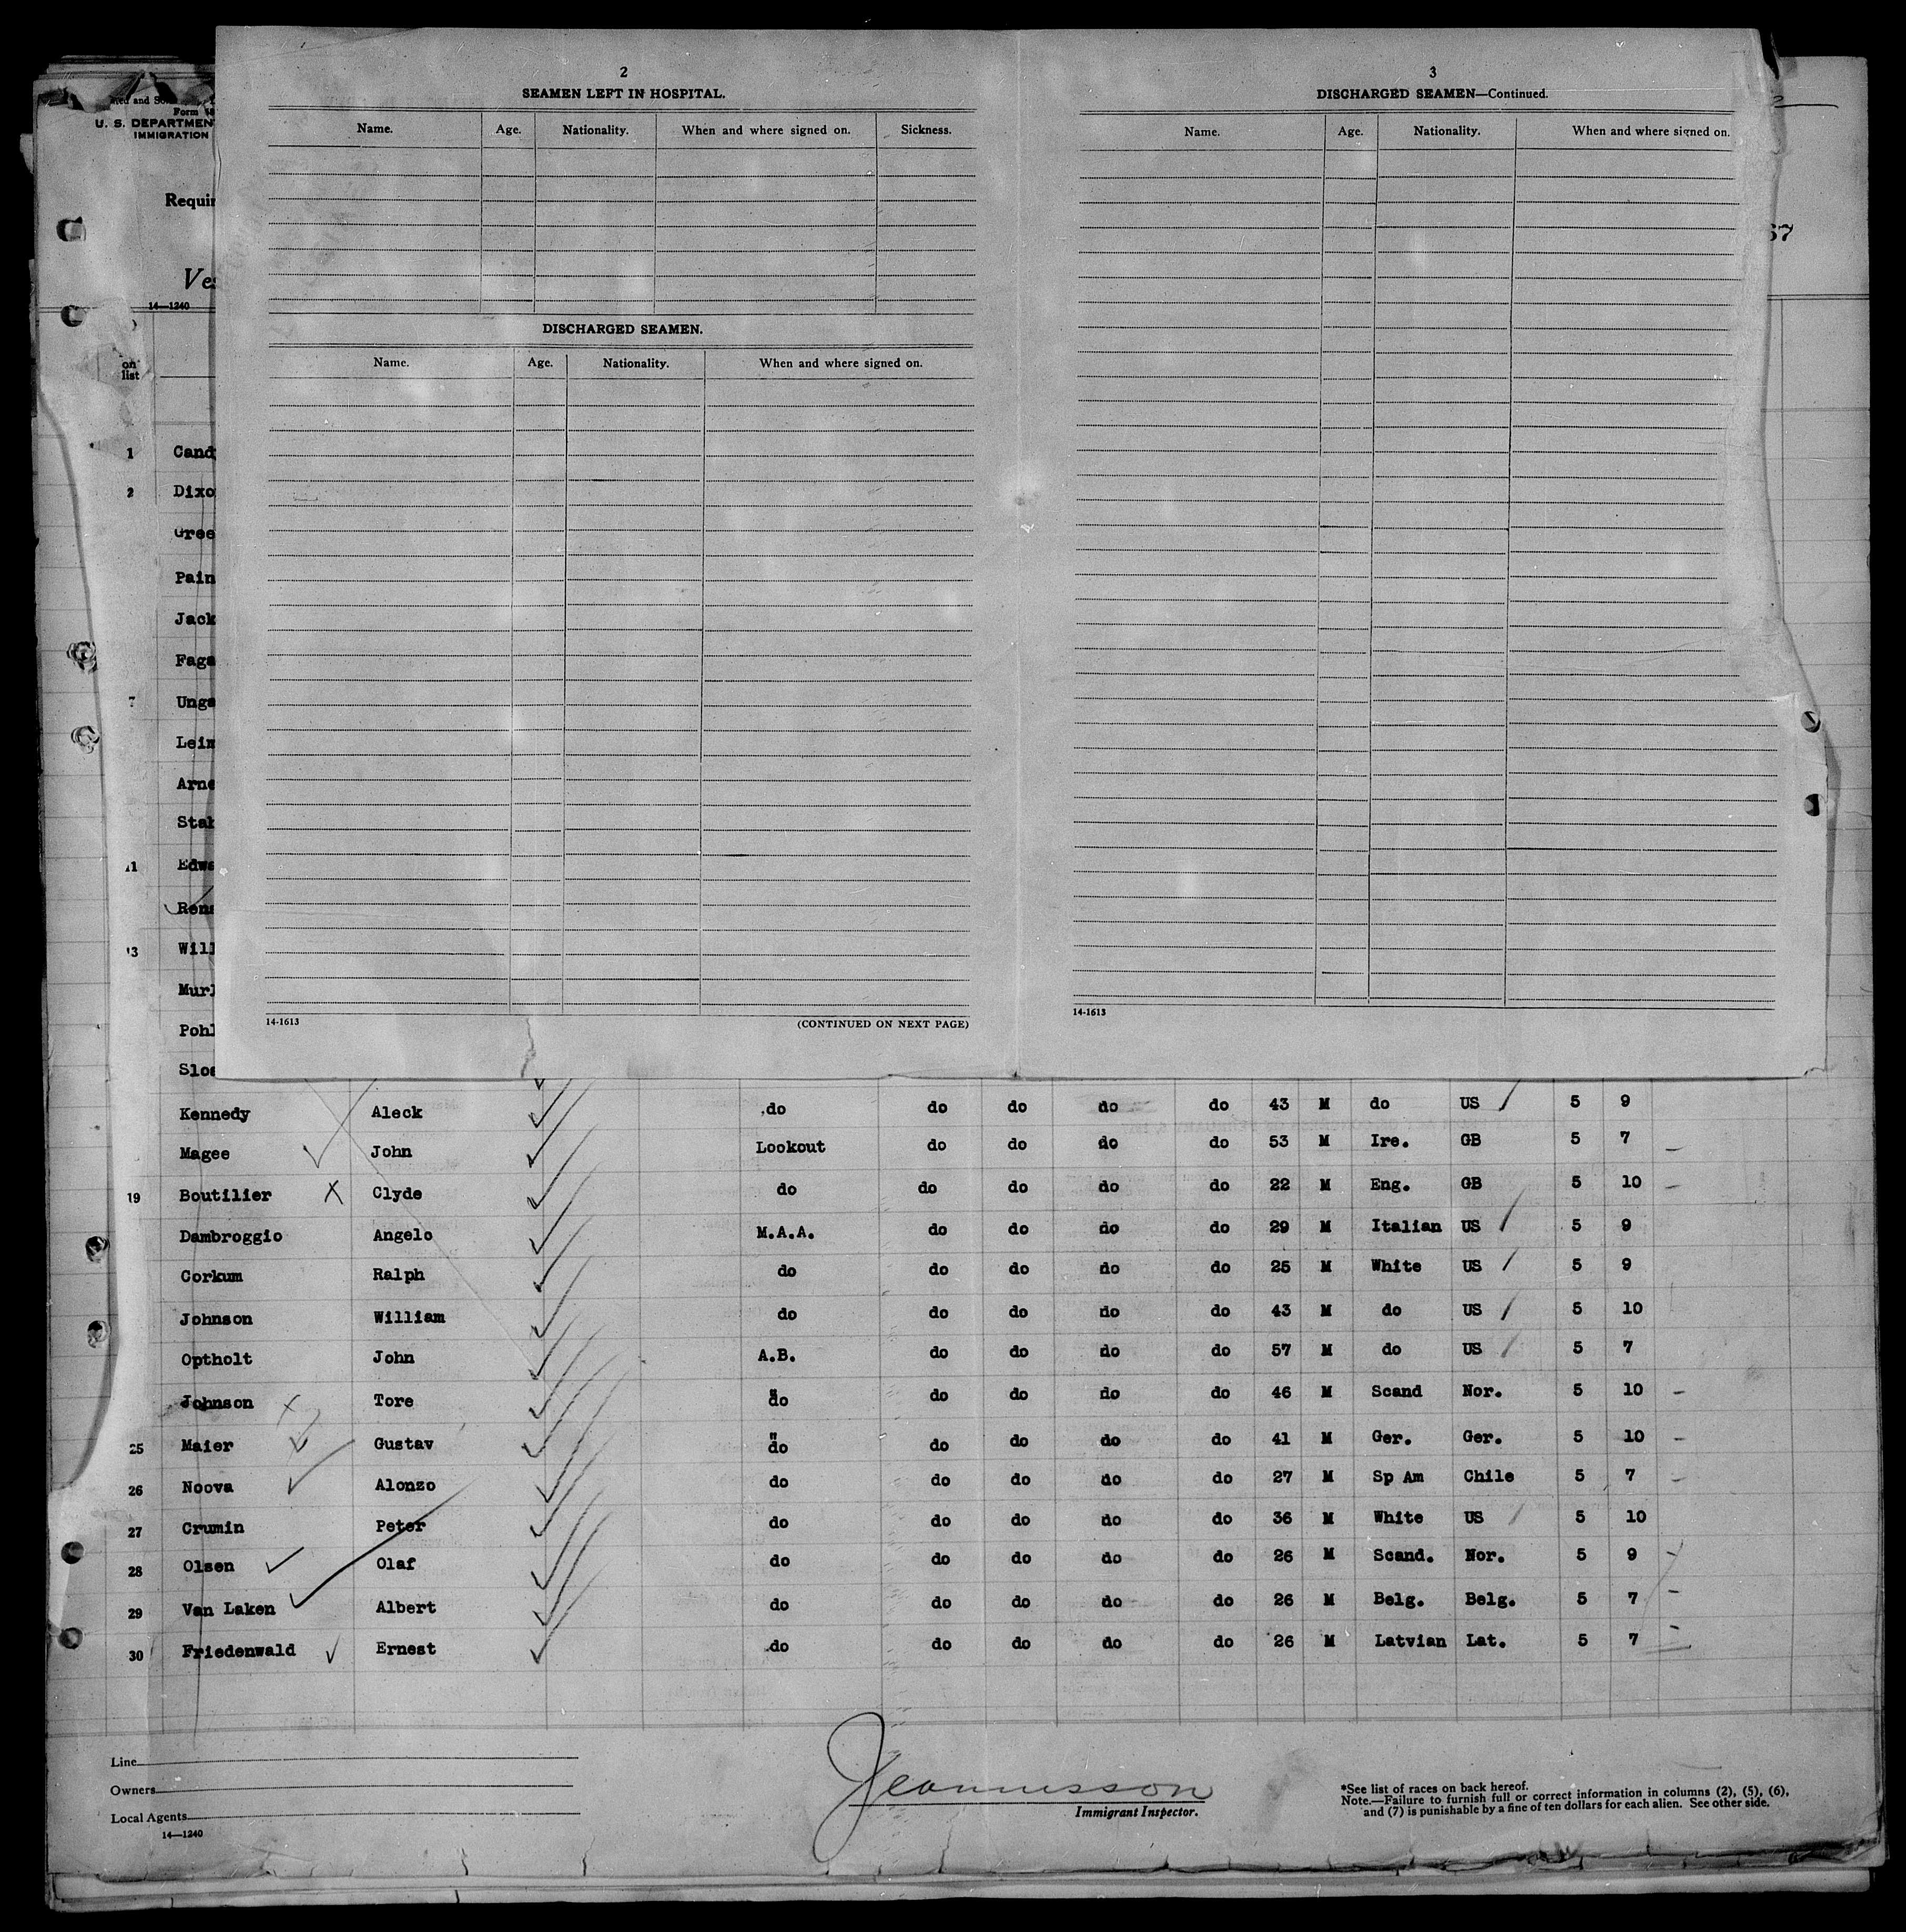 2
SEAMEN LEFT IN HOSPITAL.
Name. Age. Nationality. When and where signed on. Sickness.
DISCHARGED SEAMEN.
Name. Age. Nationality. When and where signed on.
14-1613 (CONTINUED ON NEXT PAGE)
3
DISCHARGED SEAMEN—Continued.
Name. Age. Nationality. When and where signed on.
14-1613
Form
U. S. DEPARTMEN
IMMIGRATION
Requir
Ves
14—1240
67
on
list
1 Cand
2 Dixo
Gree
Pain
Jack
Faga
7 Unga
Leim
Arne
Stak
11 Edwa
Rena
13 Will
Murl
Pohl
Slos
Kennedy Aleck do do do do do 43 M do US 5 9
Magee John Lookout do do do do 53 M Ire. GB 5 7
19 Boutilier X Clyde do do do do do 22 M Eng. GB 5 10
Dambroggio Angelo M.A.A. do do do do 29 M Italian US 5 9
Corkum Ralph do do do do do 25 M White US 5 9
Johnson William do do do do do 43 M do US 5 10
Optholt John A.B. do do do do 57 M do US 5 7
Johnson X Tore " do do do do do 46 M Scand Nor. 5 10
25 Maier Gustav " do do do do do 41 M Ger. Ger. 5 10
26 Noova Alonzo do do do do do 27 M Sp Am Chile 5 7
27 Crumin Peter do do do do do 36 M White US 5 10
28 Olsen Olaf do do do do do 26 M Scand. Nor. 5 9
29 Van Laken Albert do do do do do 26 M Belg. Belg. 5 7
30 Friedenwald Ernest do do do do do 26 M Latvian Lat. 5 7
Line
Owners
Local Agents
14—1240
Immigrant Inspector.
*See list of races on back hereof.
Note.—Failure to furnish full or correct information in columns (2), (5), (6),
and (7) is punishable by a fine of ten dollars for each alien. See other side.